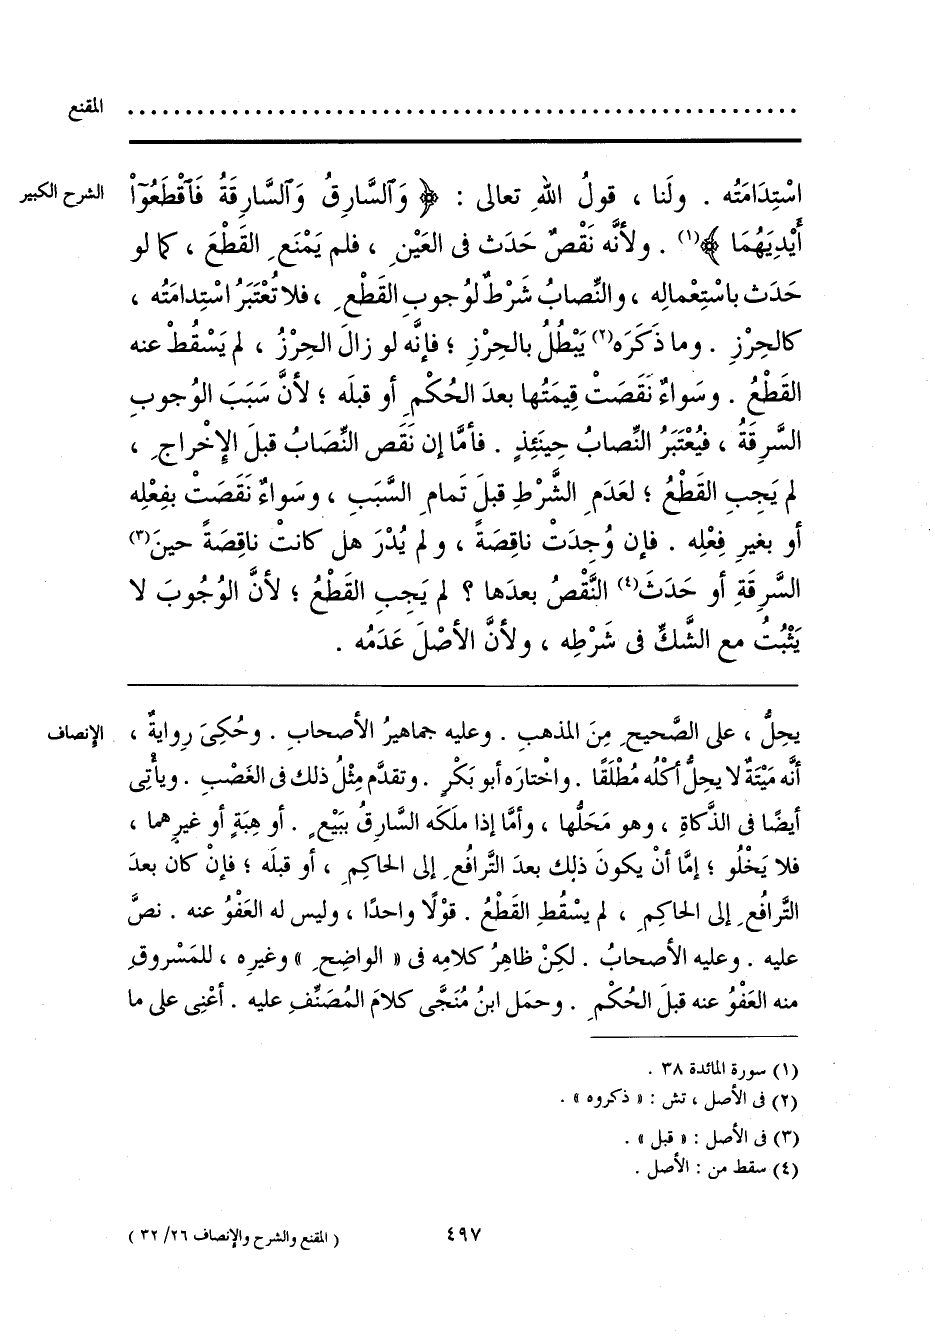 المقنع ................................................
الشرح الكبير اسْتِدَامَتُه . ولَنا ، قولُ اللهِ تعالى : ﴿ وَٱلسَّارِقُ وَٱلسَّارِقَةُ فَٱقْطَعُوٓاْ
أَيْدِيَهُمَا ﴾(١) . ولأنَّه نَقْصٌ حَدَث فى العَيْنِ ، فلم يَمْنَعِ القَطْعَ ، كما لو
حَدَث باسْتِعْمالِه ، والنِّصابُ شَرْطٌ لوُجوبِ القَطْعِ ، فلا تُعْتَبَرُ اسْتِدامَتُه ،
كالحِرْزِ . وما ذَكَرَه(٢) يَبْطُلُ بالحِرْزِ ؛ فإنَّه لو زالَ الحِرْزُ ، لم يَسْقُطْ عنه
القَطْعُ . وسَواءٌ نَقَصَتْ قِيمَتُها بعدَ الحُكْمِ أو قبلَه ؛ لأنَّ سَبَبَ الوُجوبِ
السَّرِقَةُ ، فيُعْتَبَرُ النِّصابُ حِينَئِذٍ . فأمَّا إن نَقَص النِّصَابُ قبلَ الإِخْراجِ ،
لم يَجِبِ القَطْعُ ؛ لعَدَمِ الشَّرْطِ قبلَ تَمامِ السَّبَبِ ، وسَواءٌ نَقَصَتْ بفِعْلِه
أو بغيرِ فِعْلِه . فإن وُجِدَتْ ناقِصَةً ، ولم يُدْرَ هل كانتْ ناقِصَةً حينَ(٣)
السَّرِقَةِ أو حَدَثَ(٤) النَّقْصُ بعدَها ؟ لم يَجِبِ القَطْعُ ؛ لأنَّ الوُجُوبَ لا
يَثْبُتُ مع الشَّكِّ فى شَرْطِه ، ولأنَّ الأصْلَ عَدَمُه .
الإنصاف يحِلُّ ، على الصَّحيحِ مِنَ المذهبِ . وعليه جماهيرُ الأصحابِ . وحُكِىَ رِوايةٌ ،
أنَّه مَيْتَةٌ لا يحِلُّ أكْلُه مُطْلَقًا . واخْتارَه أبو بَكْرٍ . وتقدَّم مِثْلُ ذلك فى الغَصْبِ . ويأْتِى
أيضًا فى الذَّكاةِ ، وهو مَحَلُّها ، وأمَّا إذا ملَكَه السَّارِقُ ببَيْعٍ . أو هِبَةٍ أو غيرِهما ،
فلا يَخْلُو ؛ إمَّا أنْ يكونَ ذلك بعدَ التَّرافُعِ إلى الحاكِمِ ، أو قبلَه ؛ فإنْ كان بعدَ
التَّرافُعِ إلى الحاكمِ ، لم يسْقُطِ القَطْعُ . قوْلًا واحدًا ، وليس له العَفْوُ عنه . نصَّ
عليه . وعليه الأصحابُ . لكِنْ ظاهِرُ كلامِه فى « الواضِحِ » وغيرِه ، للمَسْروقِ
منه العَفْوُ عنه قبلَ الحُكْمِ . وحمَل ابنُ مُنَجَّى كلامَ المُصَنِّفِ عليه . أعْنِى على ما
(١) سورة المائدة ٣٨ .
(٢) فى الأصل ، تش : « ذكروه » .
(٣) فى الأصل : « قبل » .
(٤) سقط من : الأصل .
٤٩٧ ( المقنع والشرح والإنصاف ٢٦/ ٣٢ )